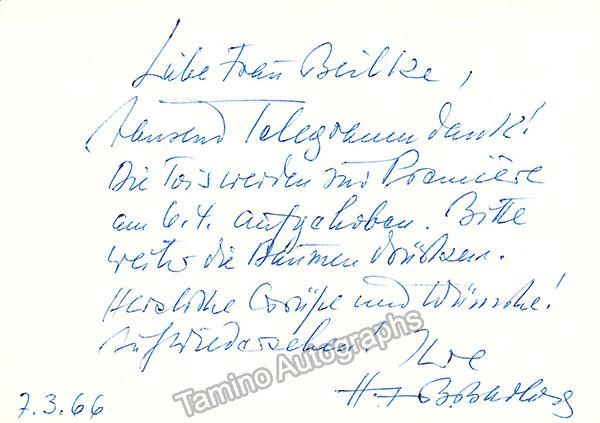 Liebe Frau Beilke,
tausend Telegramm dank!
Die Tois werden zur Première
am 6.4. aufgehoben. Bitte
weiter die Daumen drücken.
Herzliche Grüße und Wünsche!
Auf wiedersehen! Ihre
7.3.66
Tamino Autographs